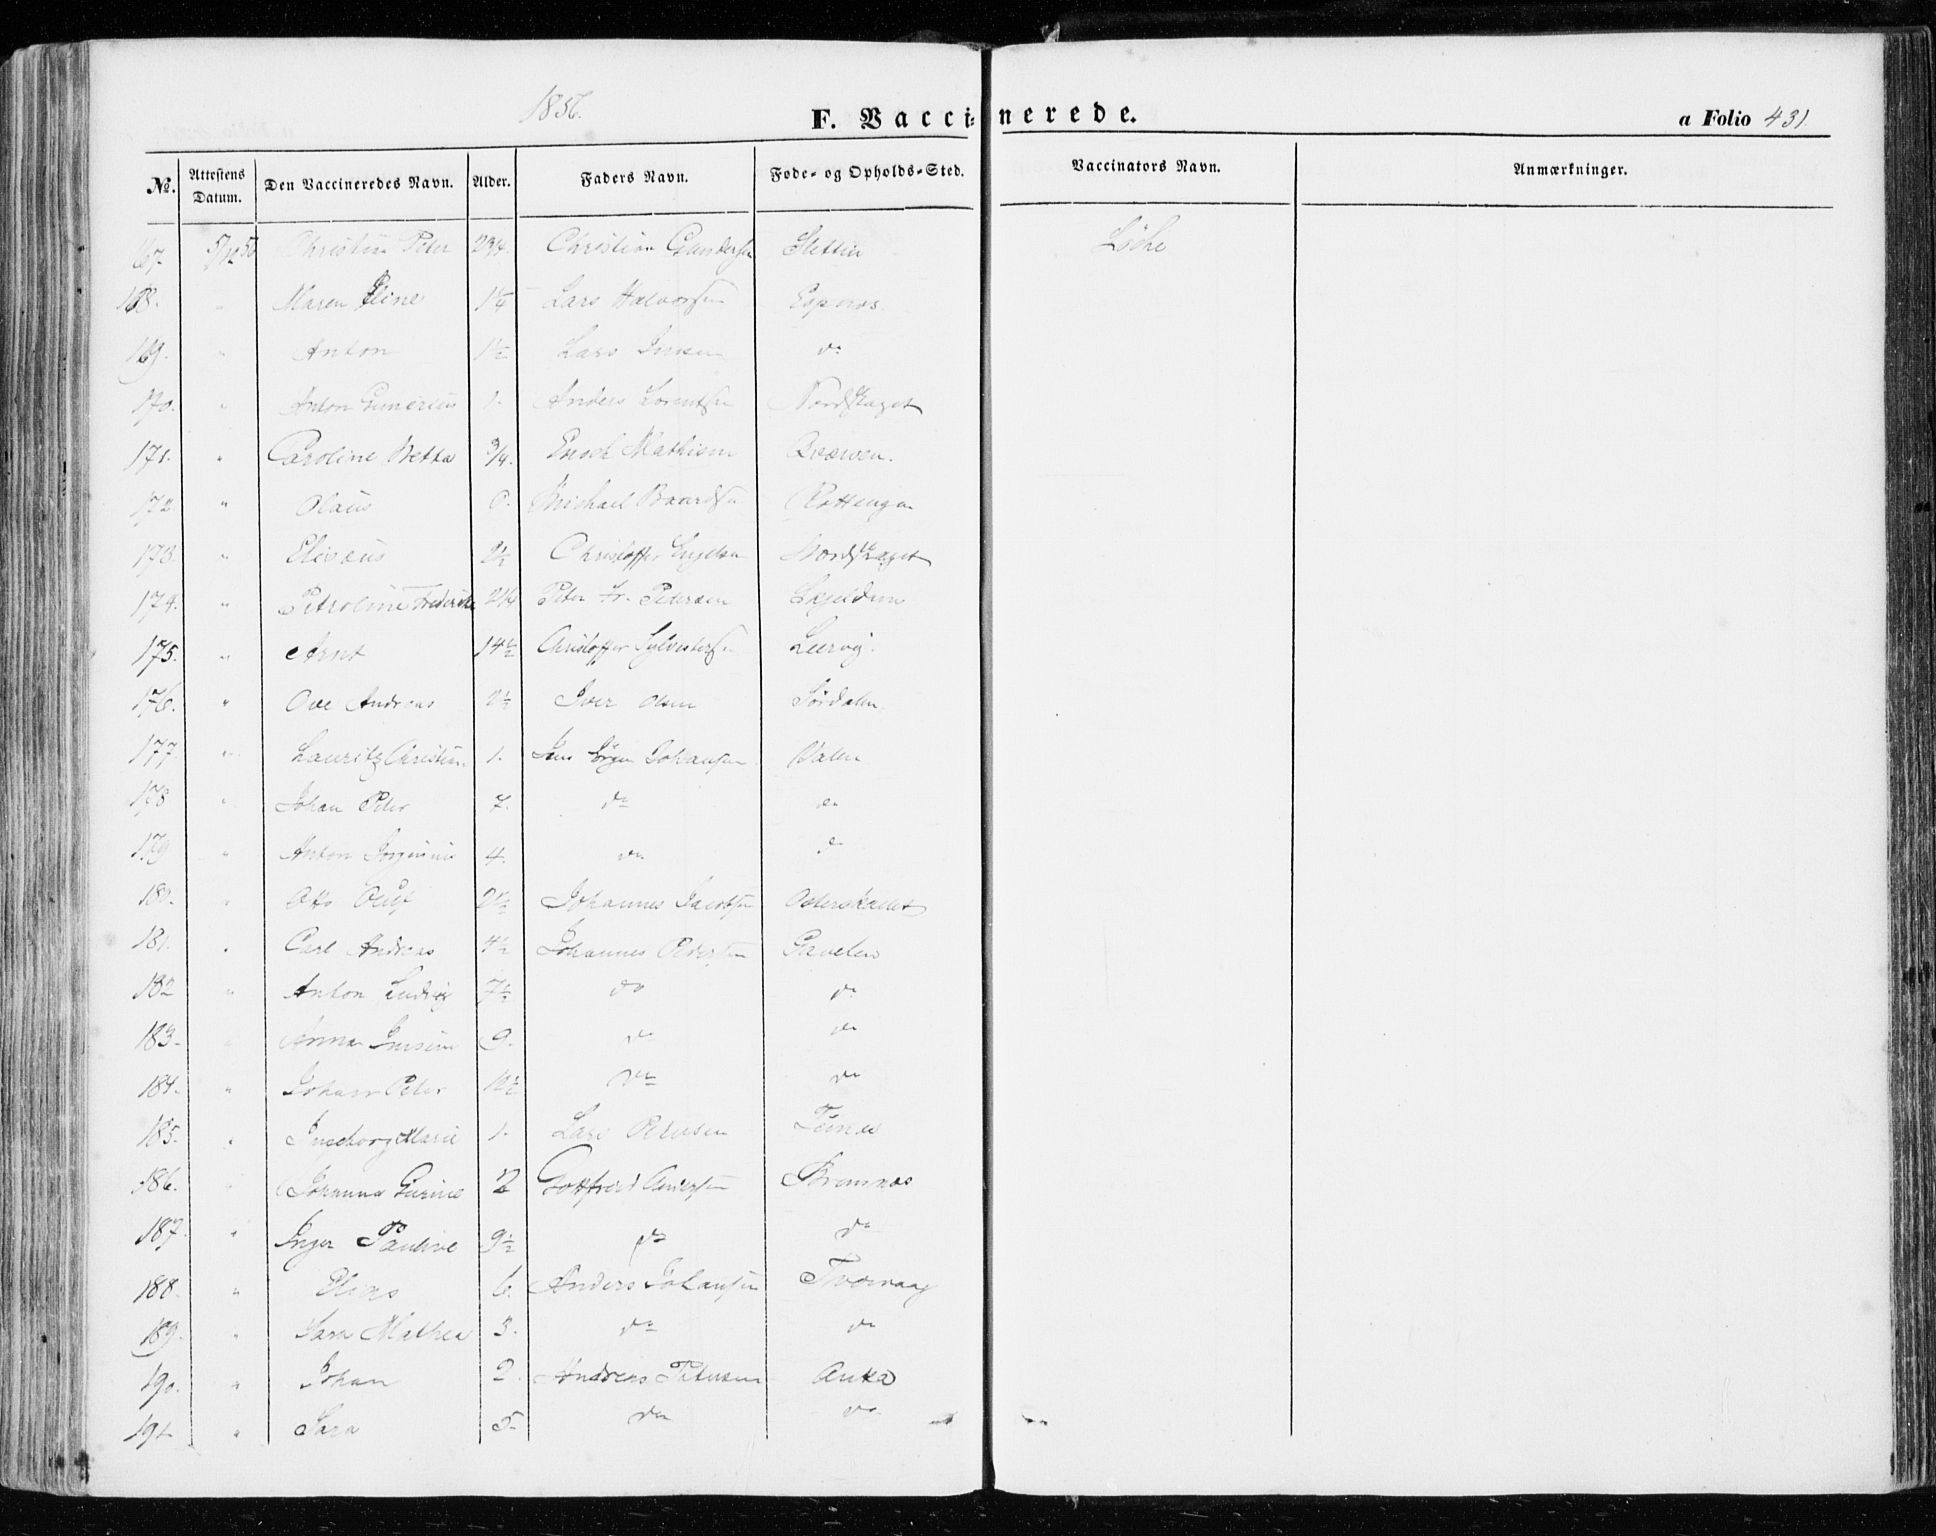 1856.
F. Vaccinerede.
a Folio 431
No. Attestens Datum. Den Vaccineredes Navn. Alder. Faders Navn. Føde- og Opholds-Sted. Vaccinators Navn. Anmærkninger.
167. 5/12 56 Christian Peter 2 3/4. Christian Gundersen Løche
168. " Maren 1 1/4 Lars Halvorsen Espnes
169. " Anton 1 1/2 Lars Jensen do
170. " Anton Gunerius 1. Anders Lorentsen Nordskaget
171. " Caroline Betta 3/4. Enoch Mathisen
172 " Olaus Michael Baardsen
173. " Elisæus 2 1/2 Christoffer Nordskaget
174. " Petroline Frederikke 2 1/4 Peter Fr. Petersen Skjeldren
175. " Arnt 14 1/2 Christoffer Sylvestersen Leervig.
176. " Ove Andreas 2 1/2 Iver Olsen Sørdalen
177 " Lauritz Christian 1. Jens Jørgen Johansen Dalen
178 " Johan Peter 7. do do
179 " Anton Jørginus 4. do do
180. " Otto Oluf 2 1/2 Johannes Jacobsen
181. " Carl Andreas 4 1/2 Johannes Pedersen Gavelen
182 " Anton Ludvig 7 1/2 do do
183. " Anna 9. do do
184. " Johan Peter 12 1/2 do do
185. " Ingeborg Marie 1. Lars Petersen
186. " Johanna Gurine 2 Gottfried Andersen Bremnes
187. " Inger Pauline 9 1/2 do do
188. " Elias 6. Anders Johansen Tværvaag
189. " Sara Mathea 3. do do
190. " Johan 2. Andreas Petersen
191 " Sara 5. do do